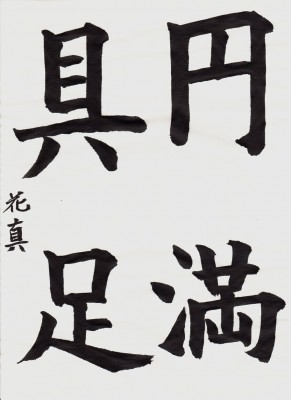 円満
具足
花真